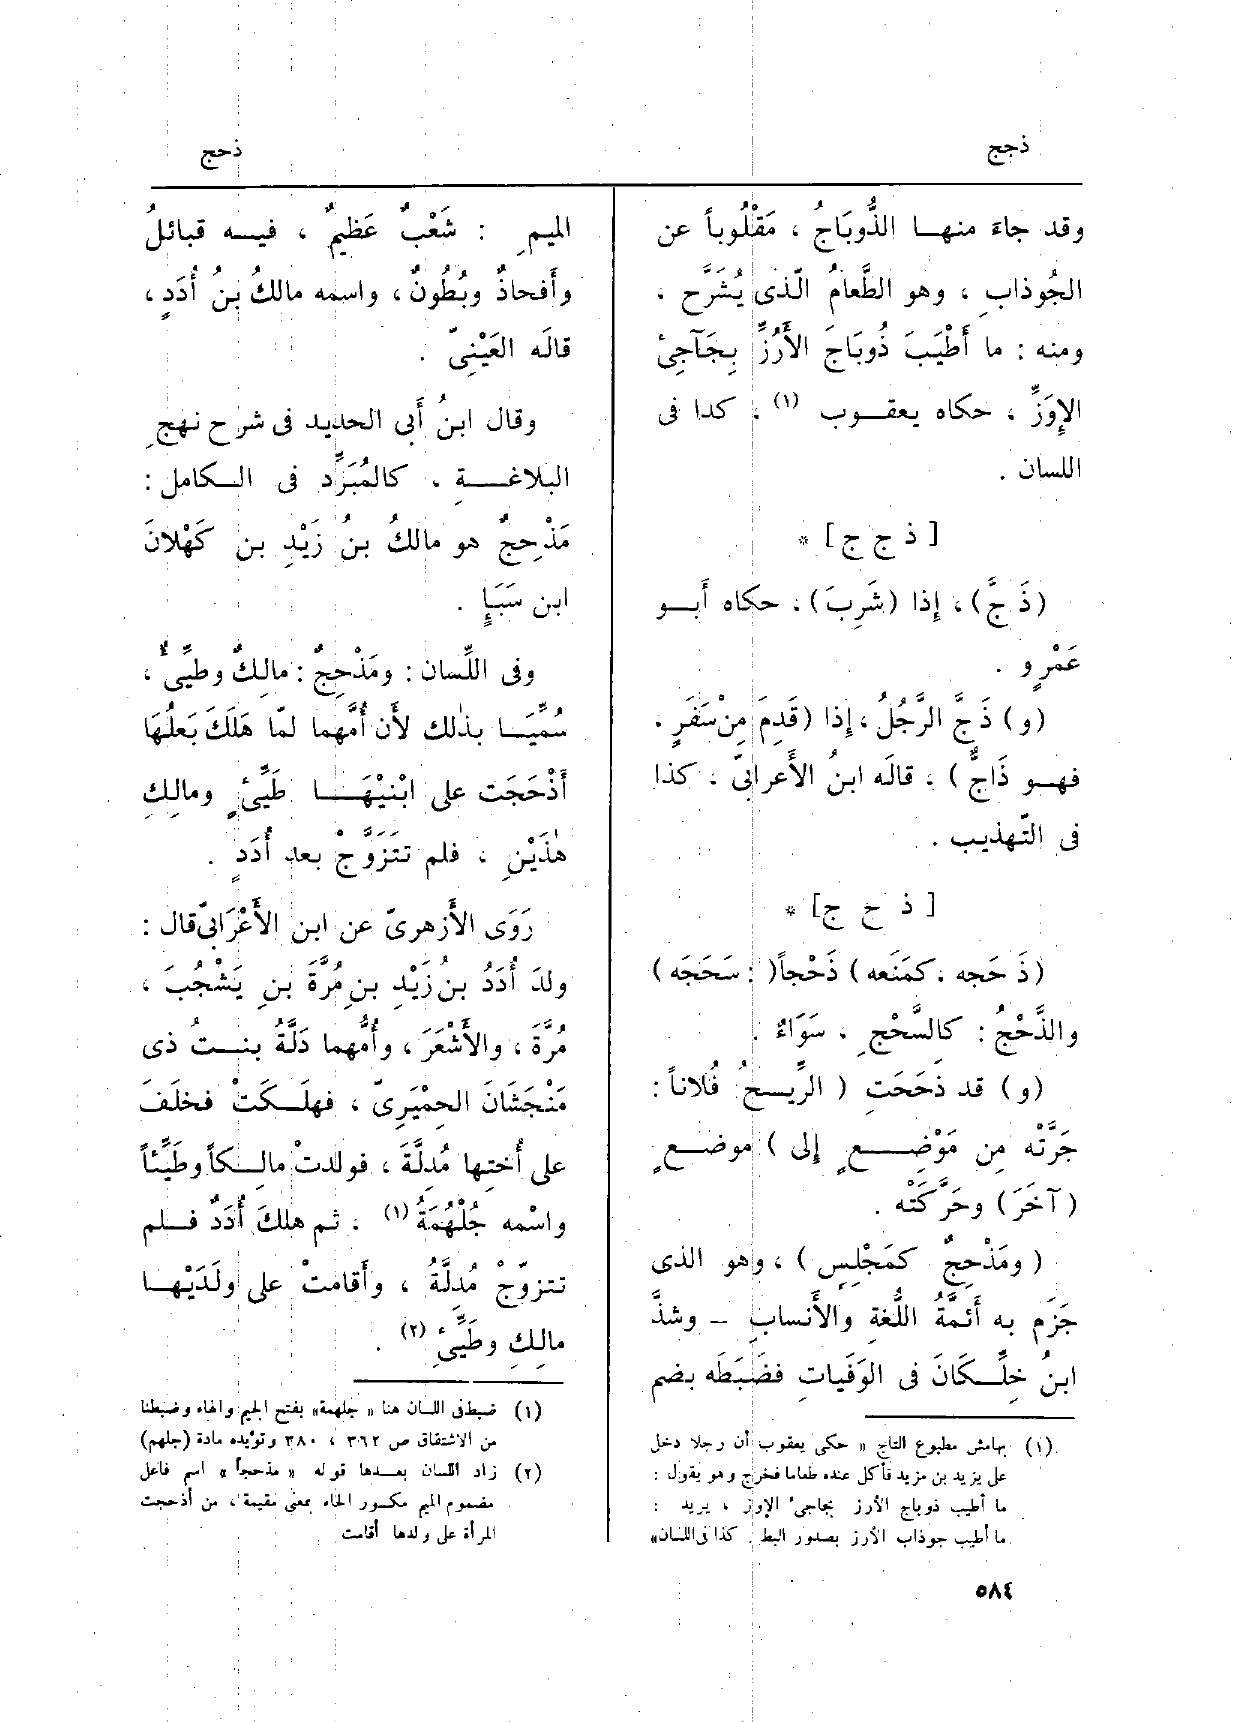 ذجج
ذحج
وقد جاءَ منهـا الذُّوبَاجُ ، مَقْلُوباً عن
الجُوذابِ ، وهو الطَّعامُ الّذى يُشَرَّح .
ومنه : ما أَطْيَبَ ذُوبَاجَ الأَرُزِّ بِجَآجِئِ
الإِوَزِّ ، حكاه يعقــوب (١) ، كذا فى
اللسان .
[ ذ ج ج ] *
(ذَجَّ) ، إِذا (شَرِبَ) ، حكاه أَبــو
عَمْرٍو .
(و) ذَجَّ الرَّجُلُ ، إِذا (قَدِمَ مِنْ سَفَرٍ ،
فهــو ذَاجٌّ ) ، قالَه ابنُ الأَعرابىّ ، كذا
فى التّهذيب .
[ ذ ح ج ] *
(ذَحَجه ، كمَنَعه ) ذَحْجاً( : سَحَجَه )
والذَّحْجُ : كالسَّحْجِ ، سَوَاءٌ .
(و) قد ذَحَجَتِ ( الرِّيــحُ فُلاناً :
جَرَّتْه مِن مَوْضِــــعٍ إِلى ) موضــعٍ
(آخَرَ) وحَرَّكَتْه .
( ومَذْحِجٌ كمَجْلِسٍ ) ، وهو الذى
جَزَم به أَئمَّةُ اللُّغةِ والأَنسابِ – وشذَّ
ابنُ خِلِّــكَانَ فى الوَفَياتِ فضَبَطَه بضم
(١) بهامش مطبوع التاج « حكى يعقوب أن رجلا دخل
على يزيد بن مزيد فأكل عنده طعاما فخرج وهو يقول :
ما أطيب ذوباج الأرز بجاجىء الإوز ، يريد :
ما أطيب جوذاب الأرز بصدور البط . كذا فى اللسان»
الميمِ : شَعْبٌ عَظِيمٌ ، فيــه قبائلُ
وأَفخاذٌ وبُطُونٌ ، واسمه مالكُ بنُ أُدَدٍ ،
قالَه العَيْنِىّ .
وقال ابنُ أَبى الحديد فى شرح نهج
البلاغــــةِ ، كالمُبَرِّد فى الــكامل :
مَذْحِجٌ هو مالكُ بنُ زَيْدِ بن كَهْلانَ
ابن سَبَإٍ .
وفى اللِّسان : ومَذْحِجٌ : مالكٌ وطيِّئٌ ،
سُمِّيَــا بذٰلك لأَن أُمَّهما لمّا هَلَكَ بَعلُهَا
أَذْحَجَت على ابْنيْهَــا طَيِّئٍ ومالكٍ
هٰذَيْنِ ، فلم تتَزَوَّجْ بعد أُدَدٍ .
رَوَى الأَزهرىّ عن ابن الأَعْرَابىّ قال :
ولدَ أُدَدُ بن زَيْدِ بنِ مُرَّةَ بنِ يَشْجُبَ ،
مُرَّةَ ، والأَشْعَرَ ، وأُمُّهما دَلَّةُ بنــتُ ذى
مَنْجَشَانَ الحِمْيَرِىّ ، فهلَــكَتْ فخلَفَ
على أُختِها مُدِلَّةَ ، فولدتْ مالِــكاً وطَيِّئاً
واسْمه جُلْهُمَةُ (١) ، ثم هلكَ أُدَدٌ فــلم
تتزوّجْ مُدِلَّةُ ، وأَقامتْ على ولَدَيْهــا
مالِكٍ وطَيِّئٍ (٢) .
(١) ضبط فى اللسان هنا « جلهمة» بفتح الجيم والهاء وضبطنا
من الاشتقاق ص ٣٦٢ ، ٣٨٠ وتؤيده مادة (جلهم)
(٢) زاد اللسان بعــدها قوله « مذحجاً » اسم فاعل
مضموم الميم مكسور الحاء بمعنى مقيمة ، من أذحجت
المرأة على ولدها أقامت
٥٨٤